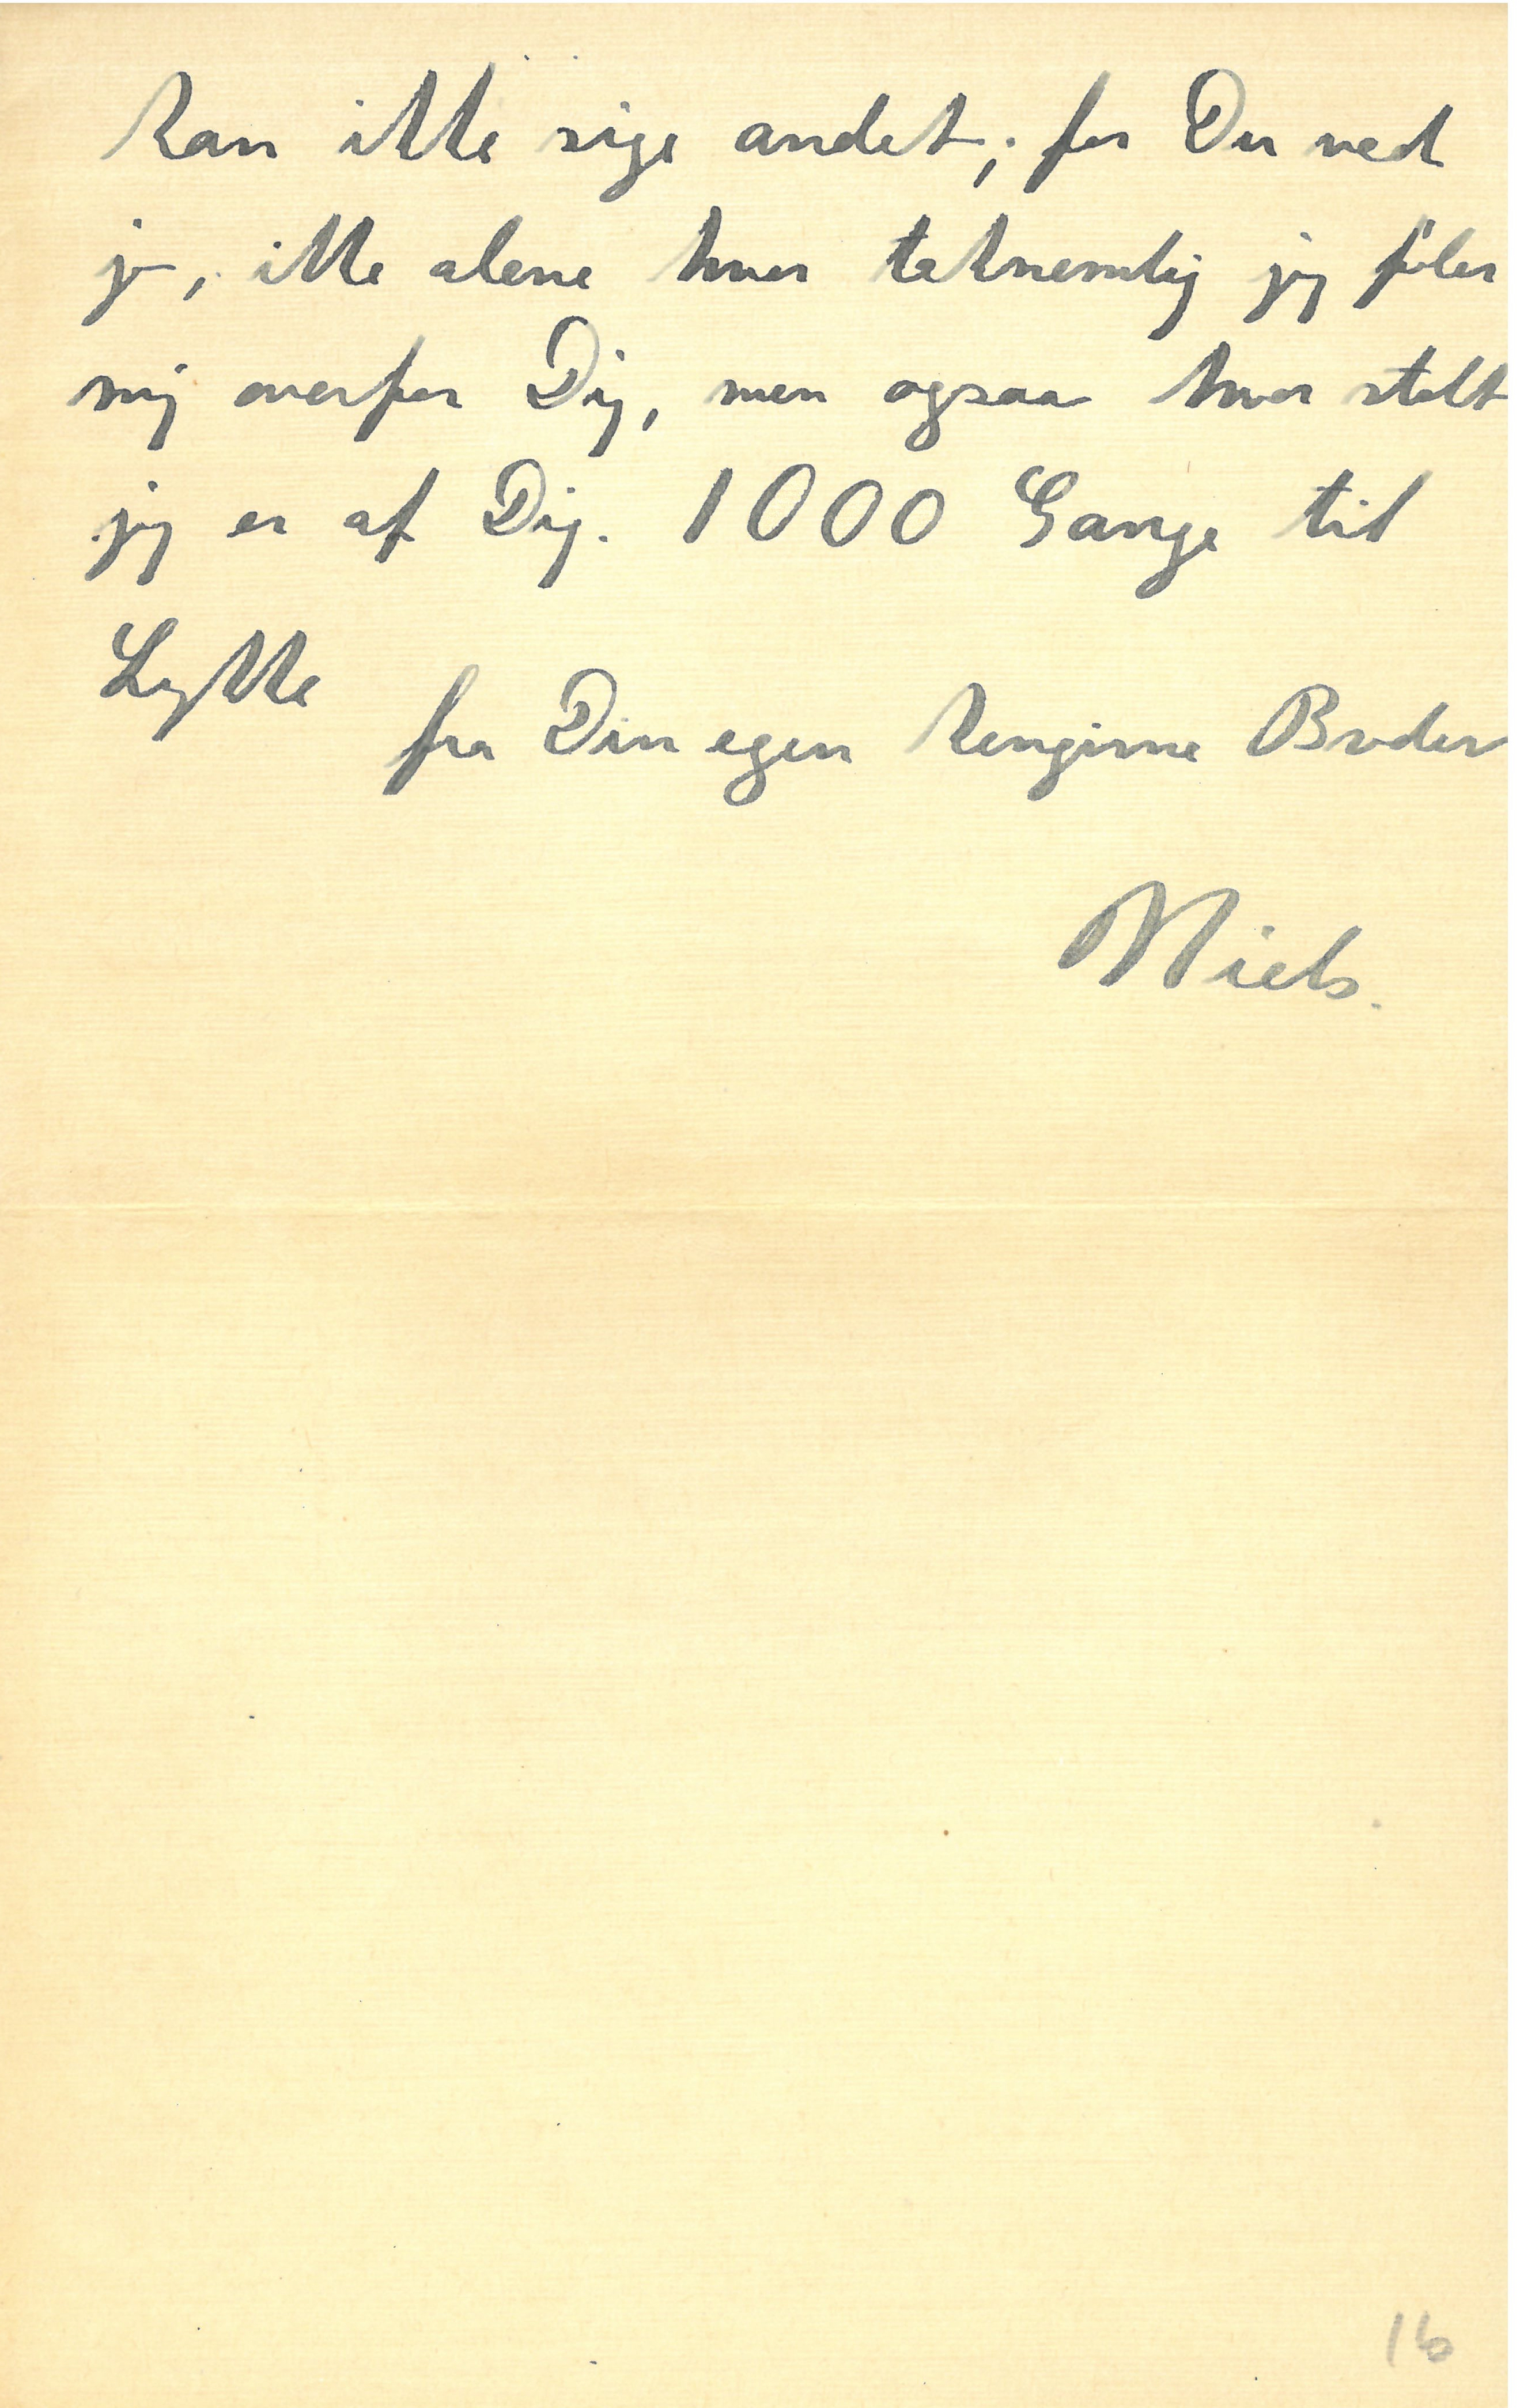 kan ikke sige andet; for Du ved
jo, ikke alene hvor taknemlig jeg føler
mig overfor Dig, men ogsaa hvor stolt
jeg er af Dig. 1000 Gange til
Lykke
fra Din egen hengivne Broder
Niels.
16